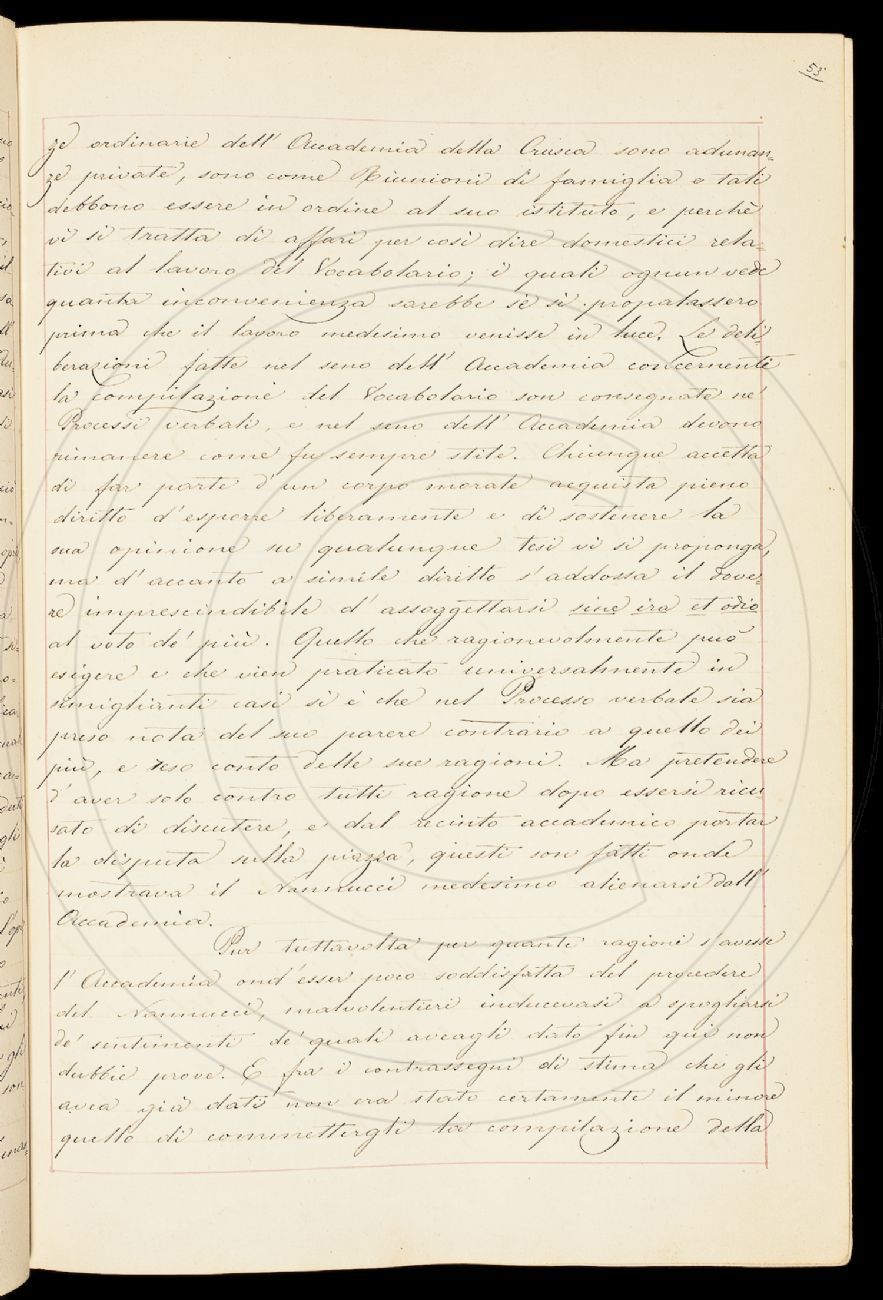 53
ze ordinarie dell' Accademia della Crusca sono adunan=
ze private, sono come Riunioni di famiglia e tali
debbono essere in ordine al suo istituto, e perchè
vi si tratta di affari per così dire domestici rela=
tivi al lavoro del Vocabolario; i quali ognun vede
quanta inconvenienza sarebbe se si propalassero
prima che il lavoro medesimo venisse in luce. Le deli=
berazioni fatte nel seno dell' Accademia concernenti
la Compilazione del Vocabolario son consegnate ne'
Processi verbali, e nel seno dell' Accademia devono
rimanere come fu sempre stile. Chiunque accetta
di far parte d' un corpo morale acquista pieno
diritto d' esporre liberamente e di sostenere la
sua opinione su qualunque tesi vi si proponga,
ma d' accanto a simile diritto s' addossa il dove=
re imprescindibile d' assoggettarsi sine ira et odio
al voto de' più. Quello che ragionevolmente può
esigere e che vien praticato universalmente in
simiglianti casi si è che nel Processo verbale sia
preso nota del suo parere contrario a quello dei
più, e reso conto delle sue ragioni. Ma pretendere
d' aver solo contro tutti ragione dopo essersi ricu
sato di discutere, e dal recinto accademico portar
la disputa sulla piazza, questi son fatti onde
mostrava il Nannucci medesimo alienarsi dall'
Accademia.
Pur tuttavolta per quante ragioni s' avesse
l' Accademia ond' esser poco soddisfatta del procedere
del Nannucci, malvolentieri inducevasi a spogliarsi
de' sentimenti de' quali aveagli dato fin qui non
dubbie prove. E fra i contrassegni di stima che gli
avea già dati non era stato certamente il minore
quello di commettergli la compilazione della